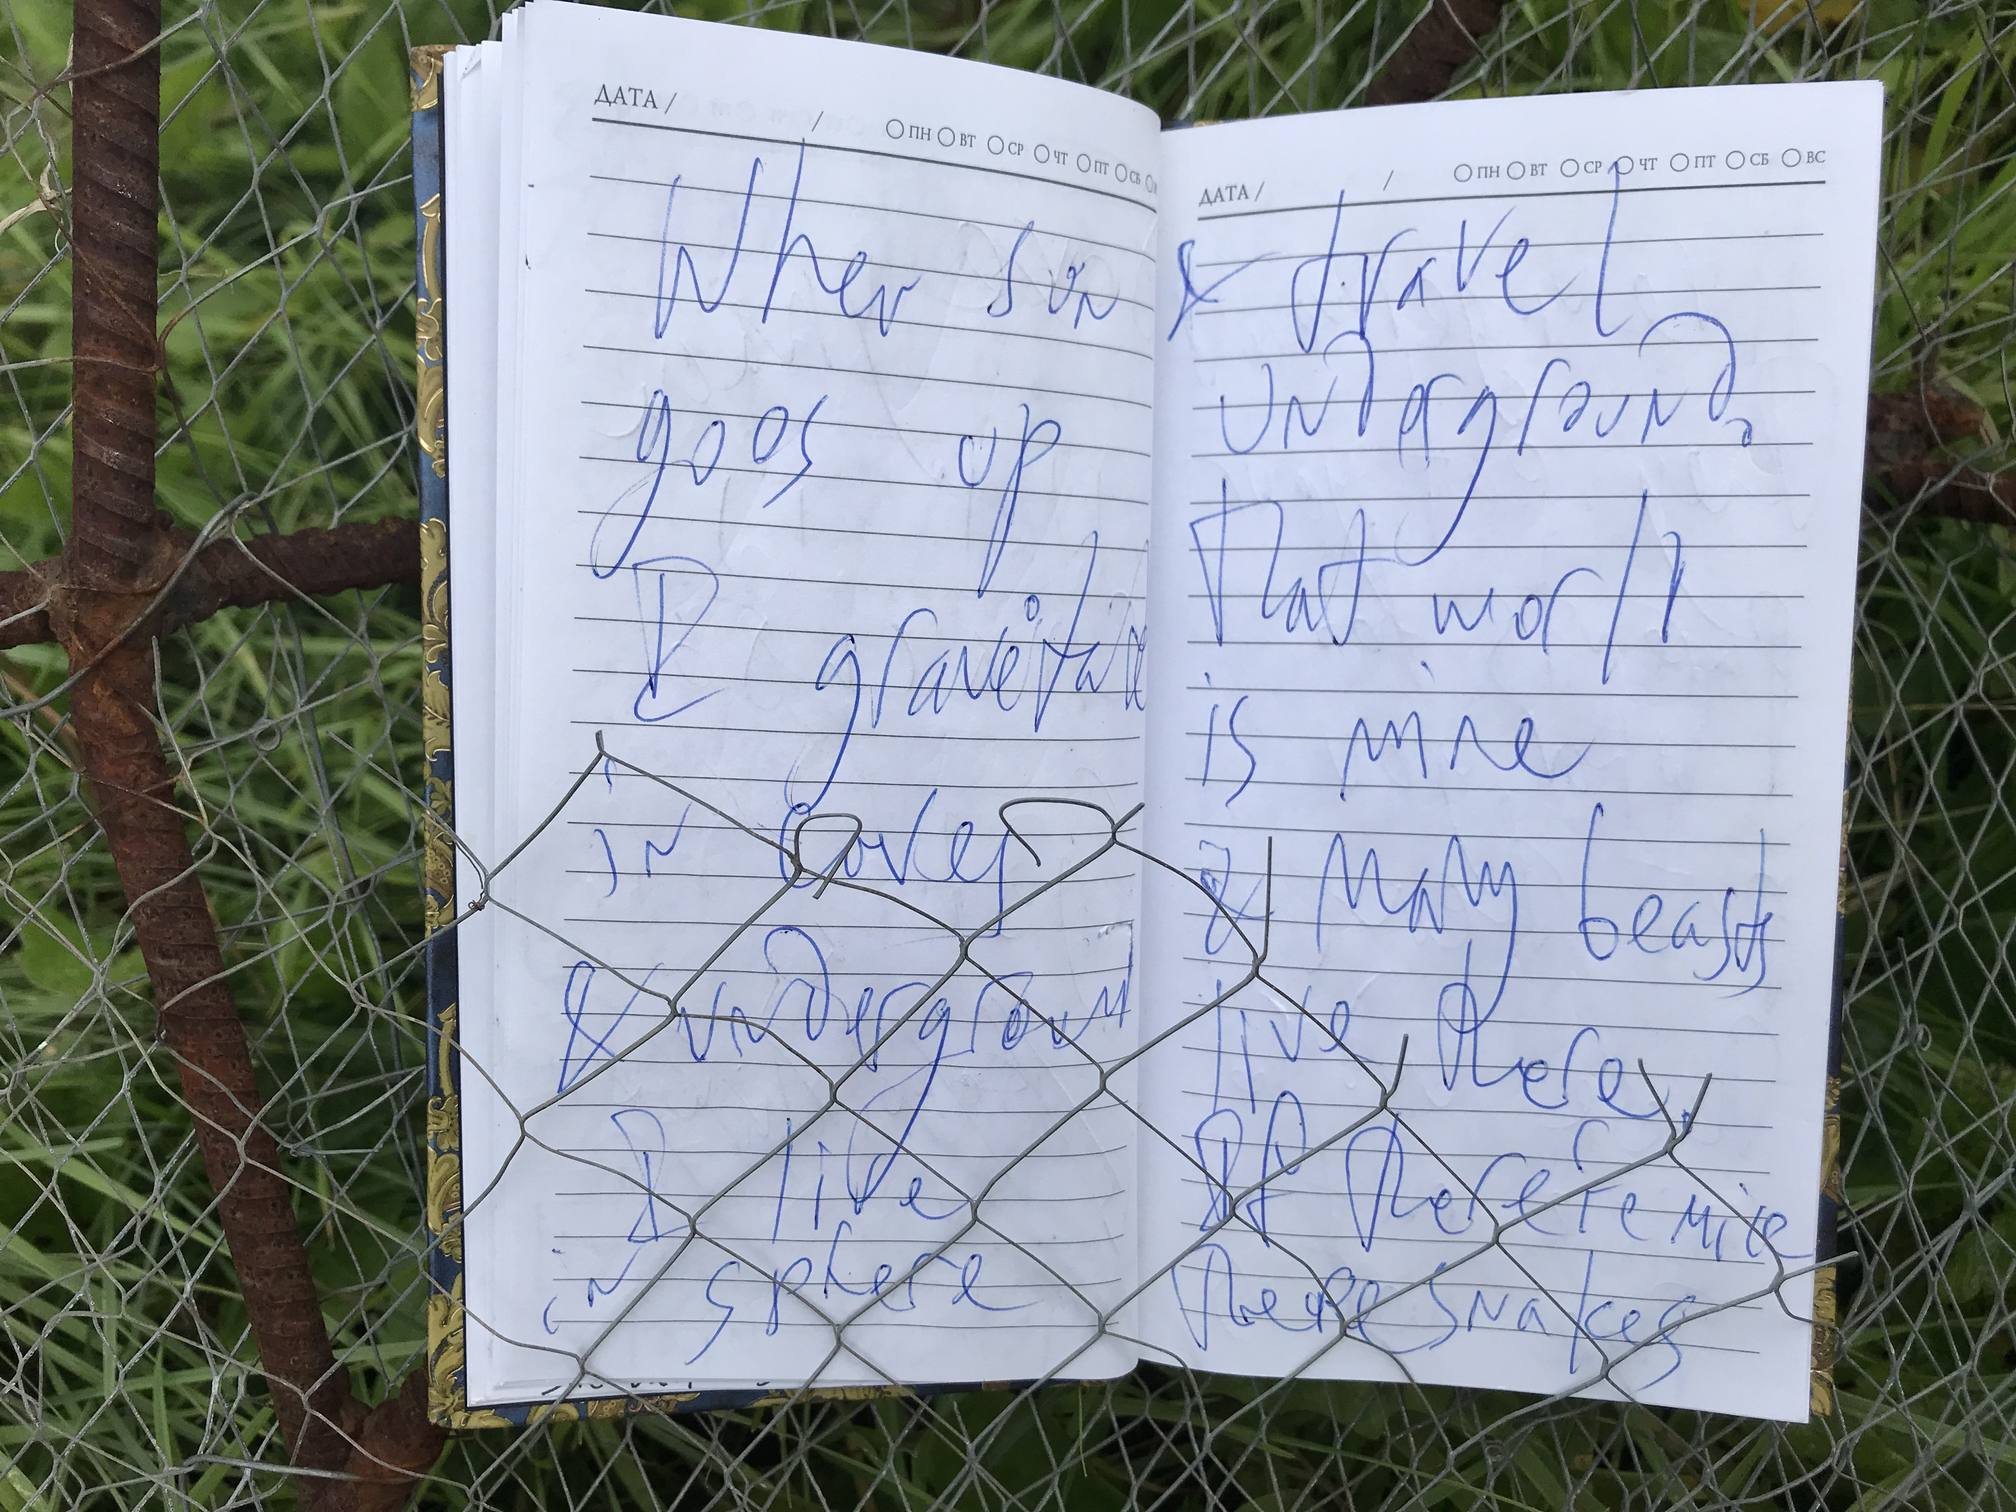 ДАТА / / ПН ВТ СР ЧТ ПТ СБ
When sun
goes up
I graveitate
in Caves
& undergroud
I live
in sphere
ДАТА / / ПН ВТ СР ЧТ ПТ СБ ВС
& travel
underground,
That world
is mine
& Many beasts
live there.
If there're mice
There snakes